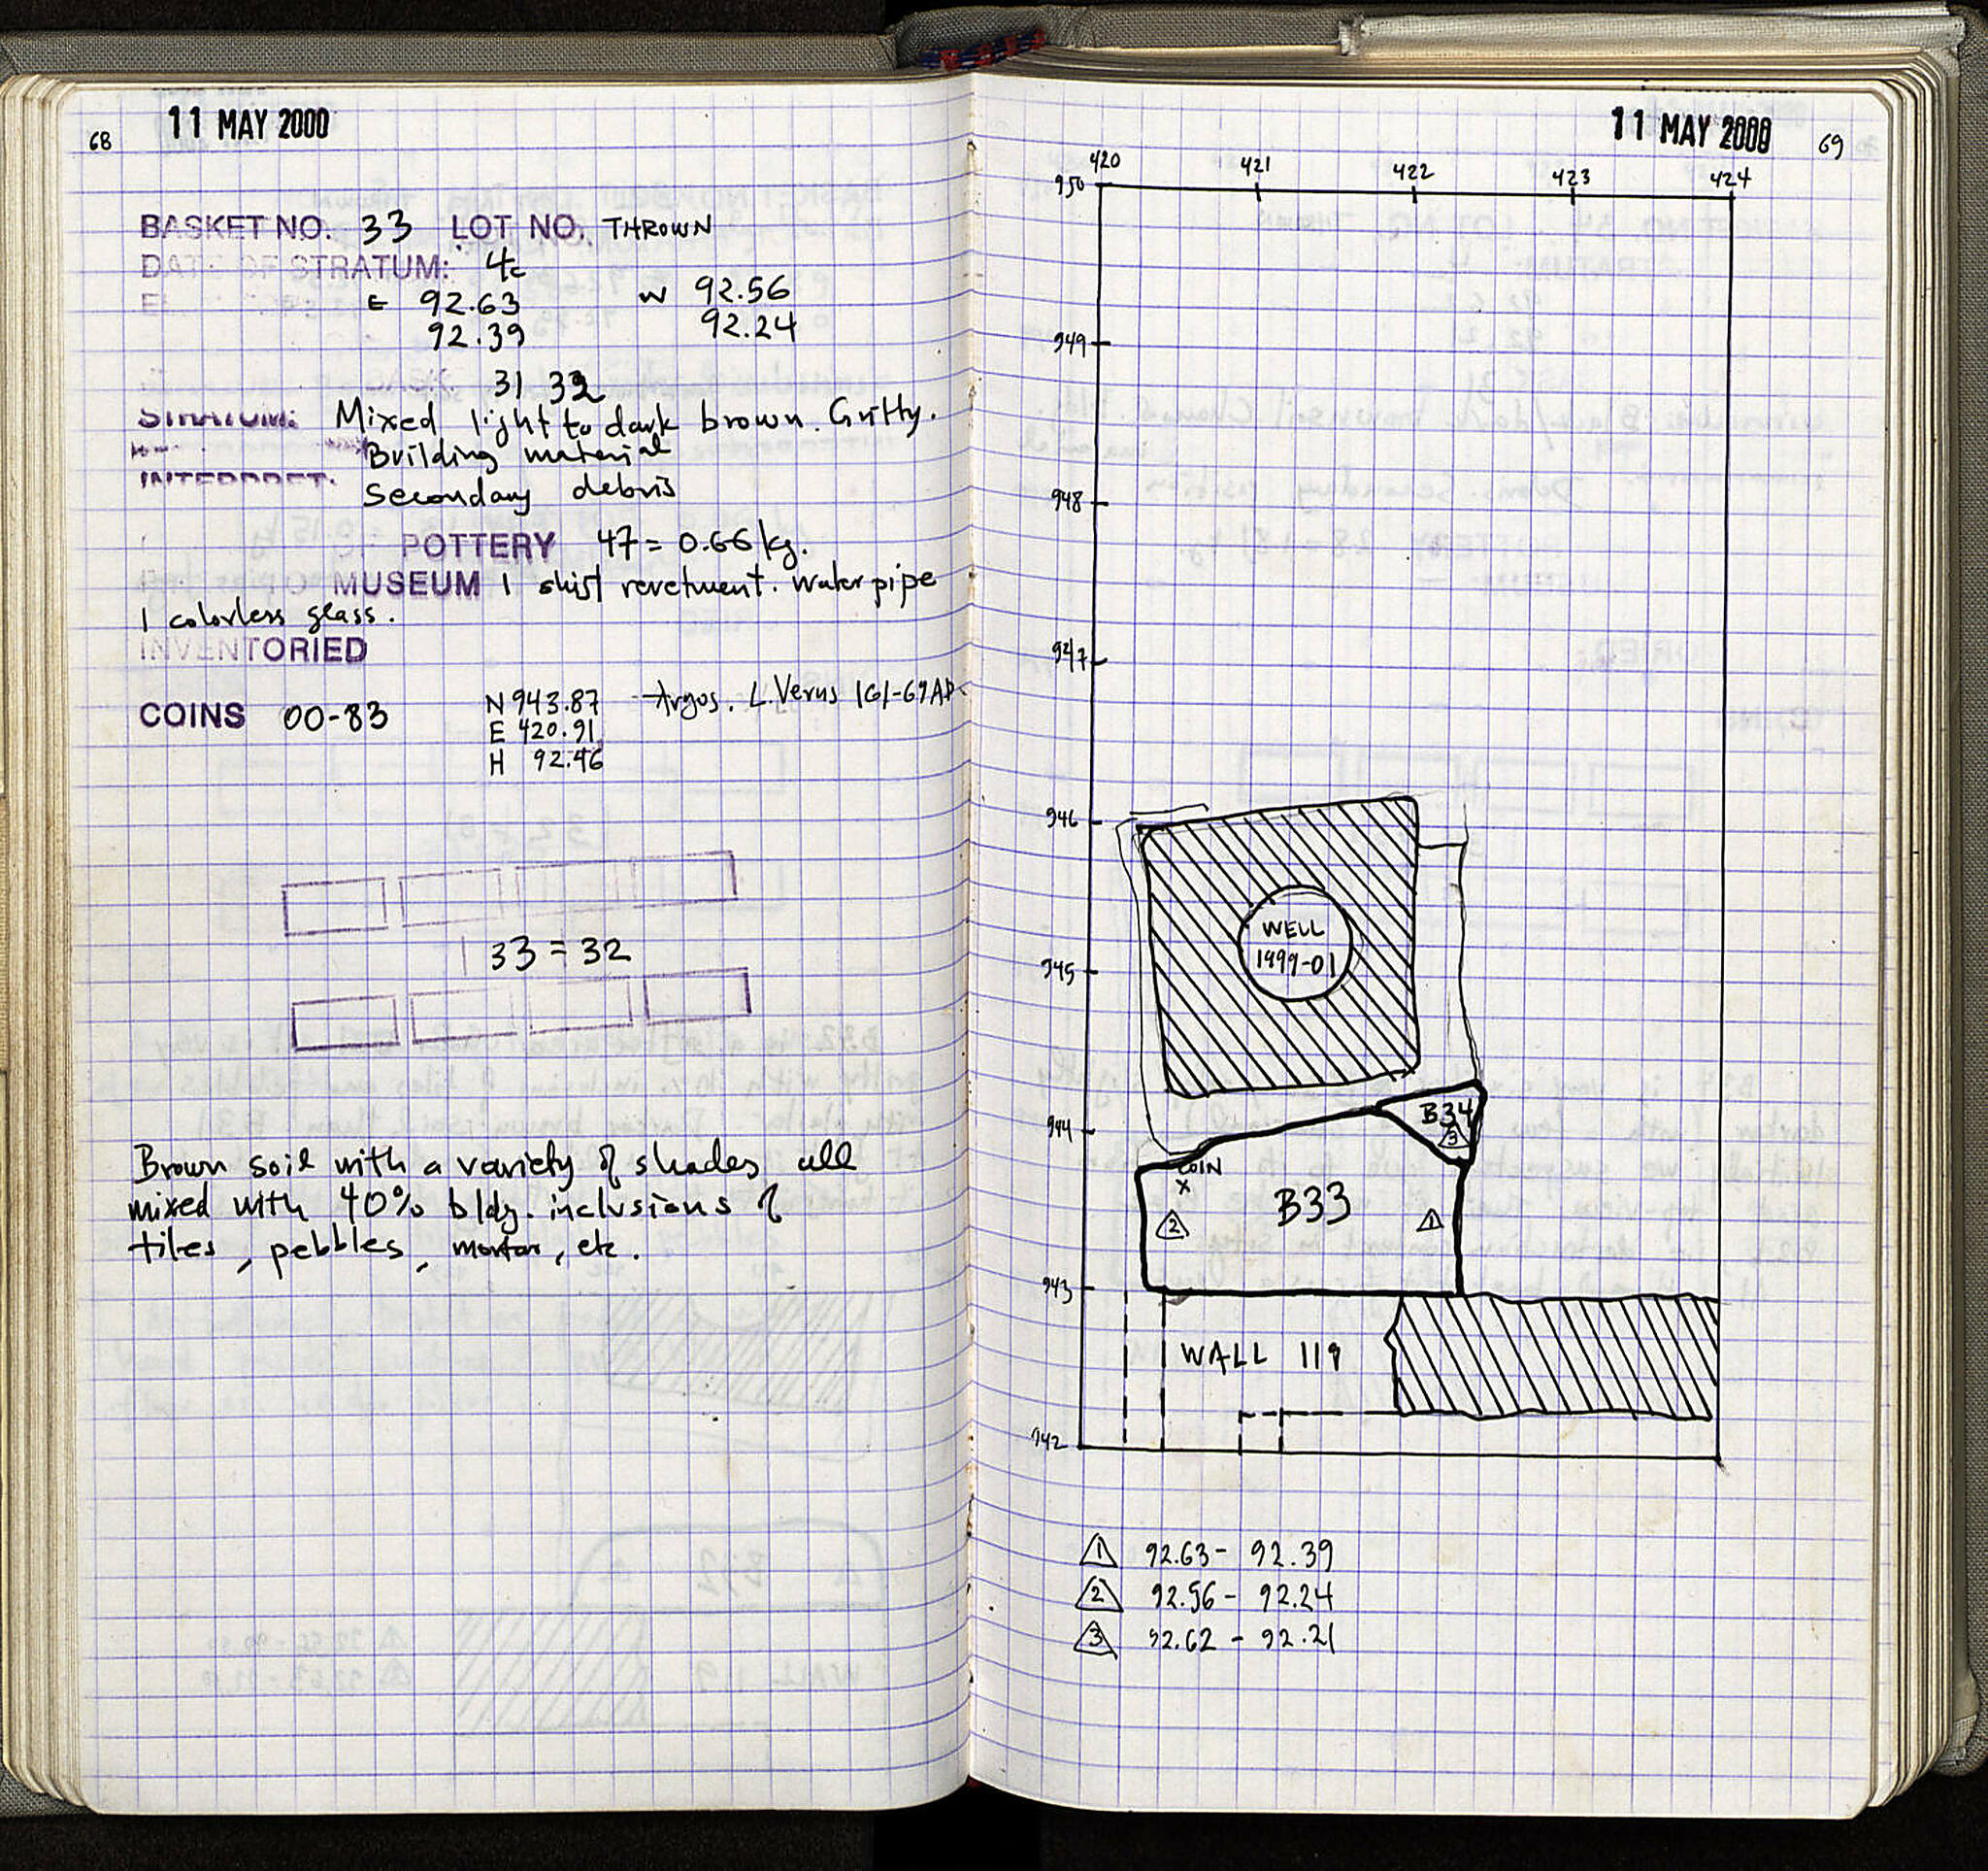 68
11 MAY 2000
BASKET NO. 33 LOT NO. THROWN
DATE OF STRATUM: 4c
E 92.63 W 92.56
92.39 92.24
31 32
STRATUM: Mixed light to dark brown. Gritty.
Building material
INTERPRET. Secondary debris
POTTERY 47 = 0.66 kg.
MUSEUM 1 shist revetment. Water pipe
1 colorless glass.
INVENTORIED
COINS 00-83 N 943.87 Argos. L. Verus 161-69 AD.
E 420.91
H 92.46
33 = 32
Brown soil with a variety of shades all
mixed with 40% bldg. inclusions of
tiles, pebbles, mortar, etc.
11 MAY 2000
69
420 421 422 423 424
950
949
948
947
946
WELL
1999-01
945
B34
3
944
COIN
x
B33
2 1
943
WALL 119
942
1 92.63 - 92.39
2 92.56 - 92.24
3 92.62 - 92.21